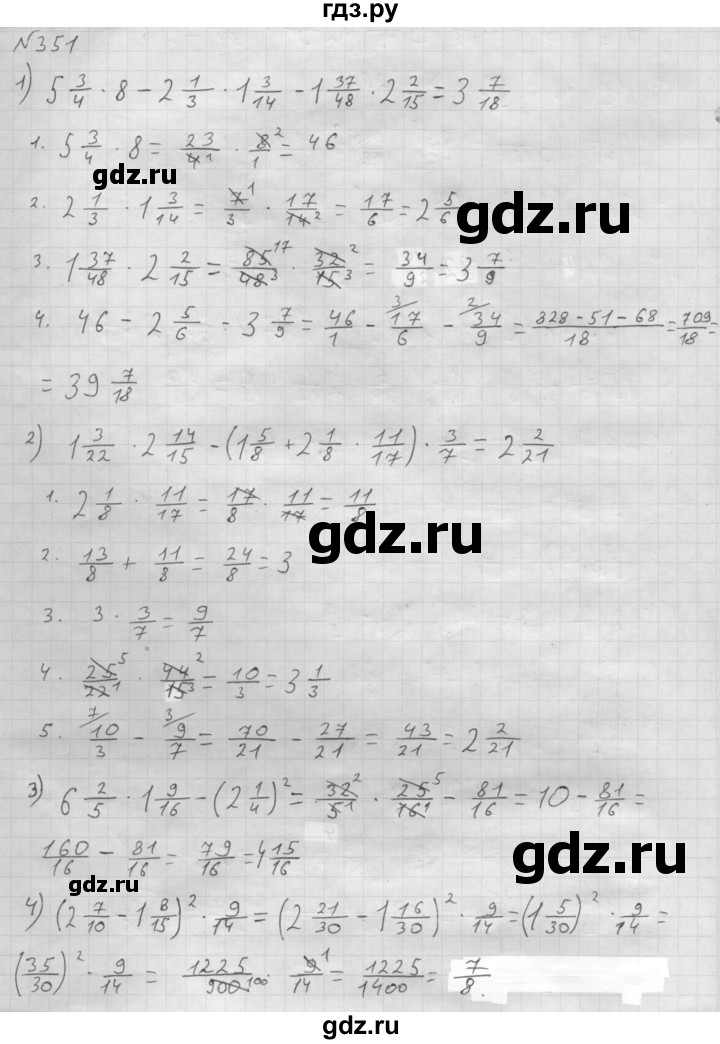 гдз.ру
№351
1) 5 3/4 · 8 − 2 1/3 · 1 3/14 − 1 37/48 · 2 2/15 = 3 7/18
1. 5 3/4 · 8 = 23/4¹ · 8²/1 = 46
gdz.ru
2. 2 1/3 · 1 3/14 = 7¹/3 · 17/14² = 17/6 = 2 5/6
gdz.ru
3. 1 37/48 · 2 2/15 = 85¹⁷/48³ · 32²/15³ = 34/9 = 3 7/9
4. 46 − 2 5/6 − 3 7/9 = 46/1 − ³⁄17/6 − ²⁄34/9 = 828 − 51 − 68/18 = 709/18 =
= 39 7/18
2) 1 3/22 · 2 14/15 − (1 5/8 + 2 1/8 · 11/17) · 3/7 = 2 2/21
1. 2 1/8 · 11/17 = 17/8 · 11/17 = 11/8
gdz.ru
2. 13/8 + 11/8 = 24/8 = 3
3. 3 · 3/7 = 9/7
4. 25⁵/22¹ · 44²/15³ = 10/3 = 3 1/3
5. ⁷⁄10/3 − ³⁄9/7 = 70/21 − 27/21 = 43/21 = 2 2/21
3) 6 2/5 · 1 9/16 − (2 1/4)² = 32²/5¹ · 25⁵/16¹ − 81/16 = 10 − 81/16 =
160/16 − 81/16 = 79/16 = 4 15/16
gdz.ru
4) (2 7/10 − 1 8/15)² · 9/14 = (2 21/30 − 1 16/30)² · 9/14 = (1 5/30)² · 9/14 =
gdz.ru
(35/30)² · 9/14 = 1225/900¹⁰⁰ · 9¹/14 = 1225/1400 = 7/8.
gdz.ru